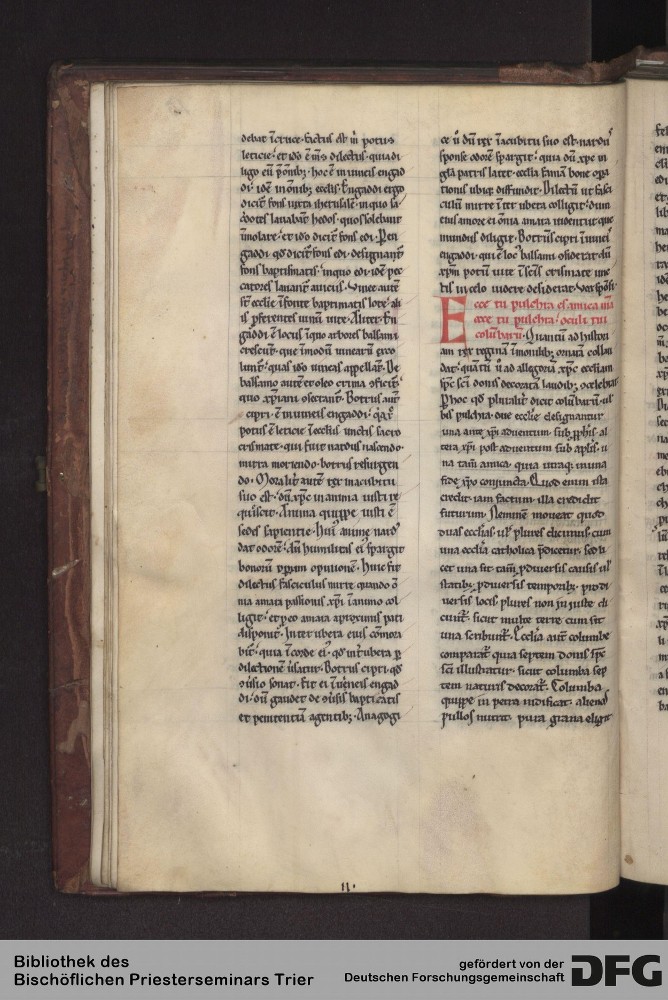 debat īcruce · factus est m̄ potus
leticie · et iđo ē m̄s dilectus · quia di
ligo eū p̄ om̄ibꝫ · hoc ē in uineis engad
di · idē in om̄ibꝫ eccl̄is · Engaddi ergo
dicit᷑ fons iuxta iherusalē · in quo sa
cerdotes lauabāt hedos · quos solebant
īmolare · et iđo dicit᷑ fons edi · Per en
gaddi qđ dicit᷑ fons edi · designant᷑
fons baptismatis · inquo edi · idē pec
catores lauant᷑
st̄ eccl̄ie ī fonte baptimatis lote · ali
is p̄ferentes uinū uite · Aliter · En
gaddi ē locus ī quo arbores balsami
crescūt · que ī modū uinearū exco
lunt᷑ · quas iđo uineas appellāt · De
balsamo autē et oleo crisma ꝯficit᷑
quo xp̄iani ꝯsecrant᷑ · Botrus aut̄
cipri · ē in uineis engaddi ·
potus ē leticie ī eccl̄iis unctis sacro
crismate · qui fuit nardus nascendo ·
mirra moriendo · botrus resurgen
do · Moralit᷑ autē rex inacubitu
suo est · dū xp̄c in anima iusti re
quiescit · Anima quippe iusti ē
sedes sapientie · Hui᷒ anime nard᷒
dat odorē · dū humilitas ei᷒ spargit
bonorū operum opinionē · Huic fit
dilectus fasciculus mirre quando o
nia amara passionis xp̄i ī animo col
ligit · et ꝑ eo amara a proximis pati
disponit · Inter ubera eius cōmora
bit᷑ · quia ī corde ei᷒ qđ int̄ ubera ꝑ
dilectionē ūsatur · Botrus cipri · qđ
sonat · Fit ei ī uineis engad
di · dū gaudet de ꝯuersis baptizatis
et penitentia agentibꝫ · Anagogi
ce ū dū rex īacubitu suo est · nardus
sponse odorē spargit · quia dū xp̄c in
gl̄a patris latet · eccl̄ia famā bone ope
rationis ubiqꝫ diffundit · Dilectū ut fasci
culū mirre īter ubera colligit · dum
eius amore ei om̄ia amara uidentur que
mundus diligit · Botrus cipri ī uineis
engaddi · qui ē loc᷒ balsami ꝯsiderat᷑ dū
xp̄m potū uite ī sc̄is crismate unc
tis in celo uidere desiderat ·
Ecce tu pulchra es amica mā
ecce tu pulchra · oculi tui
columbarū · Quantū ad histori
am rex reginā ī monilibꝫ ornatā collau
dat · quātū ū ad allegoriā · xp̄c eccl̄iam
sp̄c sc̄i donis decoratā laudibꝫ ꝯcelebrat
Per hoc qđ pluralit᷑ dicit columbarū · uł
bis pulchra · due eccl̄ie designantur
una ante xp̄i aduentum · sub ꝓph̄is · al
tera xp̄i post aduentum sub apl̄is · u
na tam̄ amica · quia utraqꝫ in una
fide xp̄o coniuncta · Quod enim ista
credit iam factum · illa credidit
futurum · Neminē moueat quod
duas eccl̄ias · uł plures dicimus · cum
una eccl̄ia catholica p̄dicetur · sed li
cet una sit · tam̄ ꝓ diuersis causis uł
statibꝫ · ꝓ diuersis temporibꝫ · pro di
uersis locis · plures non in iuste di
cunt᷑ · sicut multe terre cum sit
una scribunt᷑ · Eccl̄ia aut̄ columbe
comparat᷑ · quia septem donis sp̄c
sc̄i illustratur · sicut columba sep
tem naturis decorat᷑ · Columba
quippe in petra nidificat · alienos
pullos nutrit · pura grana eligit
II·
Bibliothek des
Bischöflichen Priesterseminars Trier
gefördert von der
Deutschen Forschungsgemeinschaft
DFG